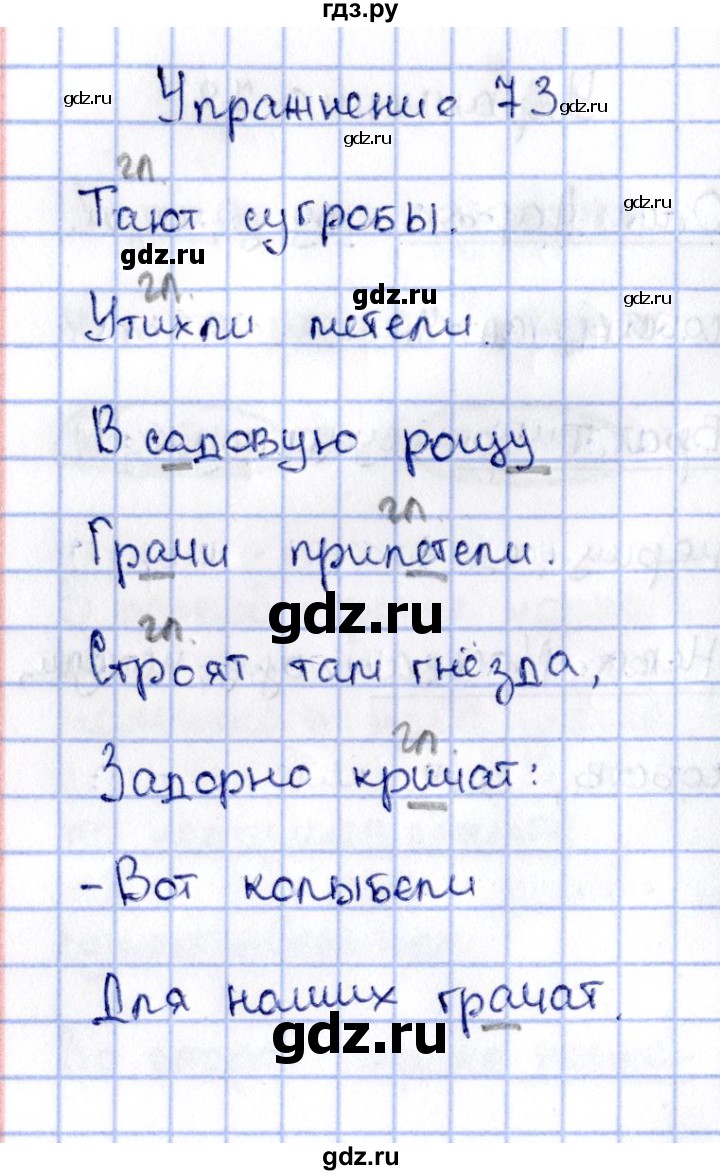 гдз.ру
gdz.ru
Упражнение 73
gdz.ru
gdz.ru
гл.
Тают сугробы.
gdz.ru
gdz.ru
гл.
gdz.ru
gdz.ru
Утихли метели.
В садовую рощу
гл.
Грачи прилетели.
gdz.ru
гл.
Строят там гнёзда,
гл.
Задорно кричат:
- Вот колыбели
Для наших грачат.
gdz.ru
gdz.ru